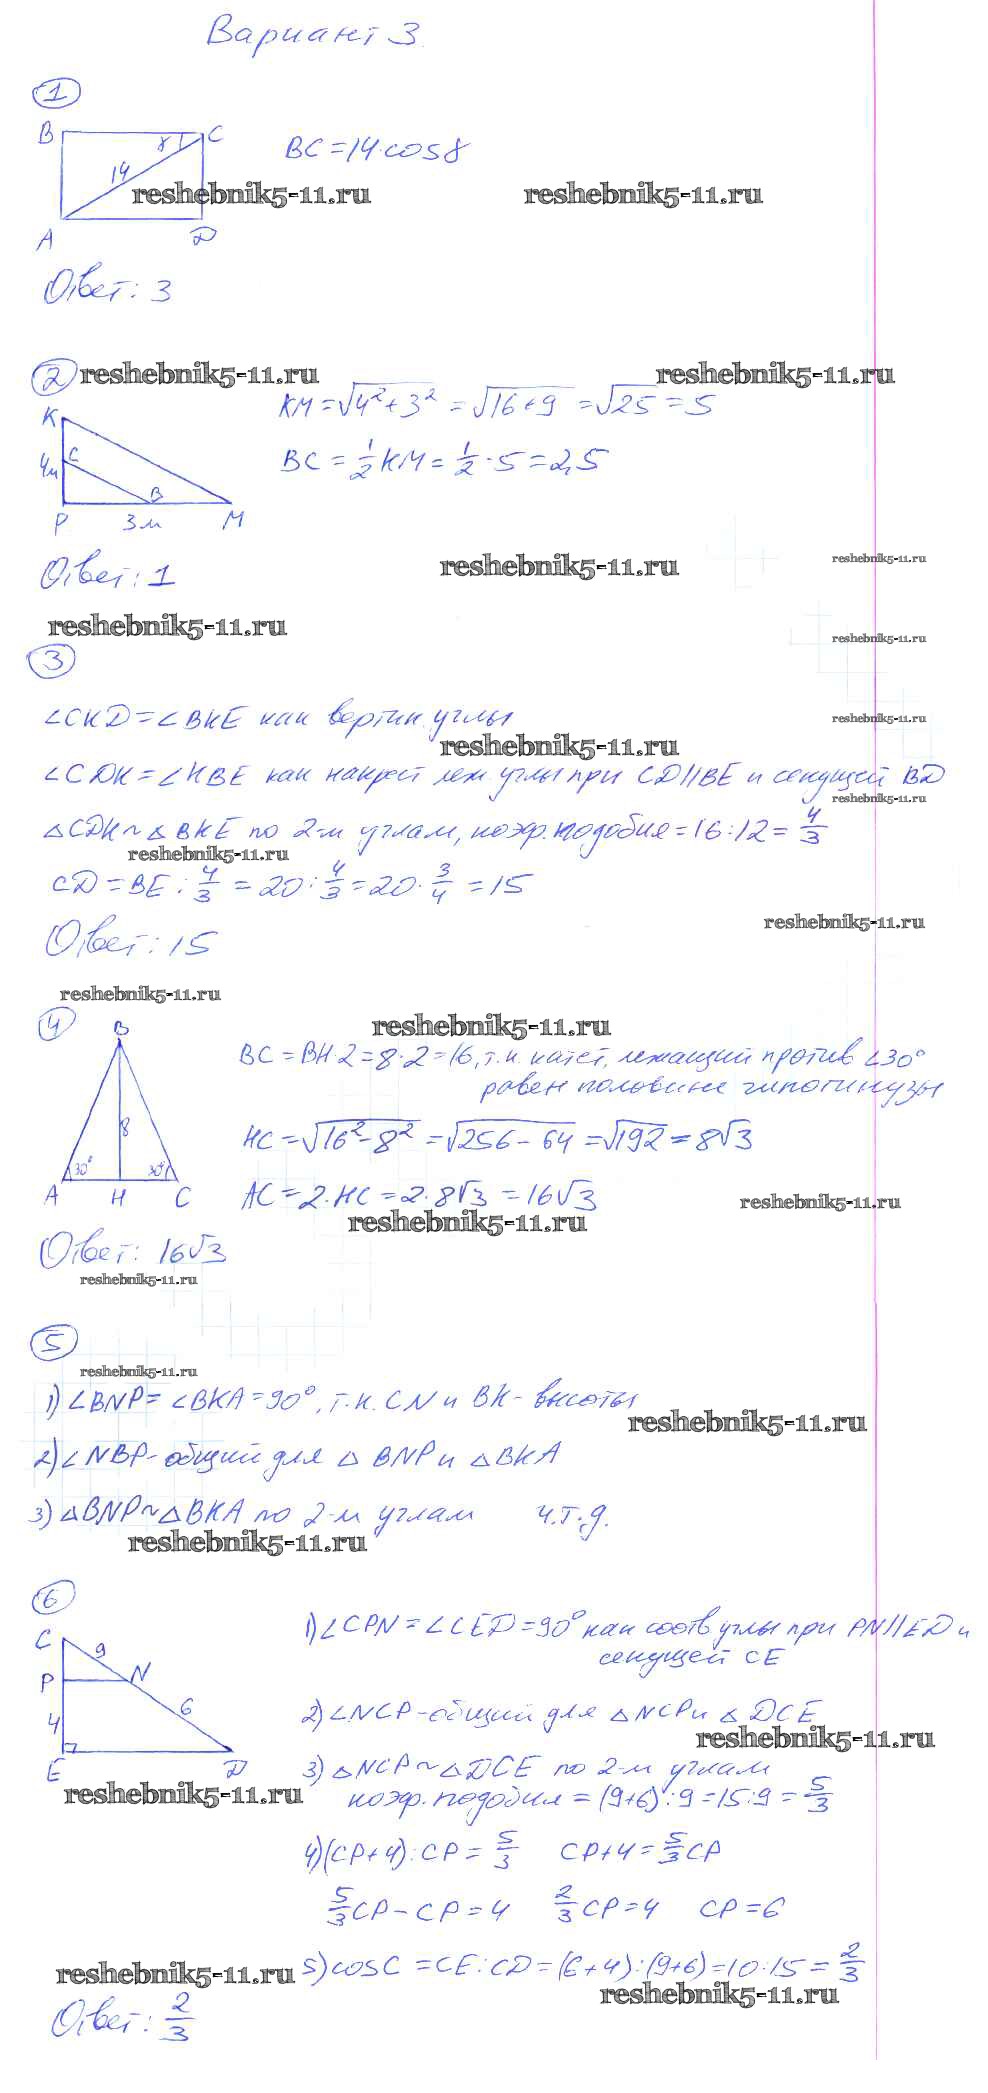 Вариант 3.
1
B C 8
14
A D
BC = 14·cos8
reshebnik5-11.ru reshebnik5-11.ru
Ответ: 3
2 reshebnik5-11.ru reshebnik5-11.ru
KM = √4²+3² = √16+9 = √25 = 5
BC = 1/2 KM = 1/2 · 5 = 2,5
K
4м C
B
P 3м M
Ответ: 1
reshebnik5-11.ru reshebnik5-11.ru
reshebnik5-11.ru reshebnik5-11.ru
3
∠CKD = ∠BKE как вертик. углы
reshebnik5-11.ru reshebnik5-11.ru
∠CDK = ∠KBE как накрест леж углы при CD∥BE и секущей BD
reshebnik5-11.ru
△CDK ~ △BKE по 2-м углам, коэф. подобия = 16:12 = 4/3
reshebnik5-11.ru
CD = BE : 4/3 = 20 : 4/3 = 20 · 3/4 = 15
reshebnik5-11.ru
Ответ: 15
reshebnik5-11.ru
4 reshebnik5-11.ru
B
8
30° 30°
A H C
BC = BH·2 = 8·2 = 16, т.к. катет, лежащий против ∠30°
равен половине гипотинузы
HC = √16²-8² = √256-64 = √192 = 8√3
AC = 2·HC = 2·8√3 = 16√3
reshebnik5-11.ru reshebnik5-11.ru
Ответ: 16√3
reshebnik5-11.ru
5
reshebnik5-11.ru
1) ∠BNP = ∠BKA = 90°, т.к. CN и BK - высоты
reshebnik5-11.ru
2) ∠NBP - общий для △ BNP и △BKA
3) △BNP ~ △BKA по 2-м углам ч.т.д.
reshebnik5-11.ru
6
C 9
P N
4 6
E D
1) ∠CPN = ∠CED = 90° как соотв углы при PN∥ED и
секущей CE
2) ∠NCP - общий для △NCP и △ DCE
reshebnik5-11.ru
3) △NCP ~ △DCE по 2-м углам
коэф. подобия = (9+6):9 = 15:9 = 5/3
reshebnik5-11.ru
4) (CP+4):CP = 5/3 CP+4 = 5/3 CP
5/3 CP - CP = 4 2/3 CP = 4 CP = 6
5) cosC = CE:CD = (6+4):(9+6) = 10:15 = 2/3
reshebnik5-11.ru reshebnik5-11.ru
Ответ: 2/3